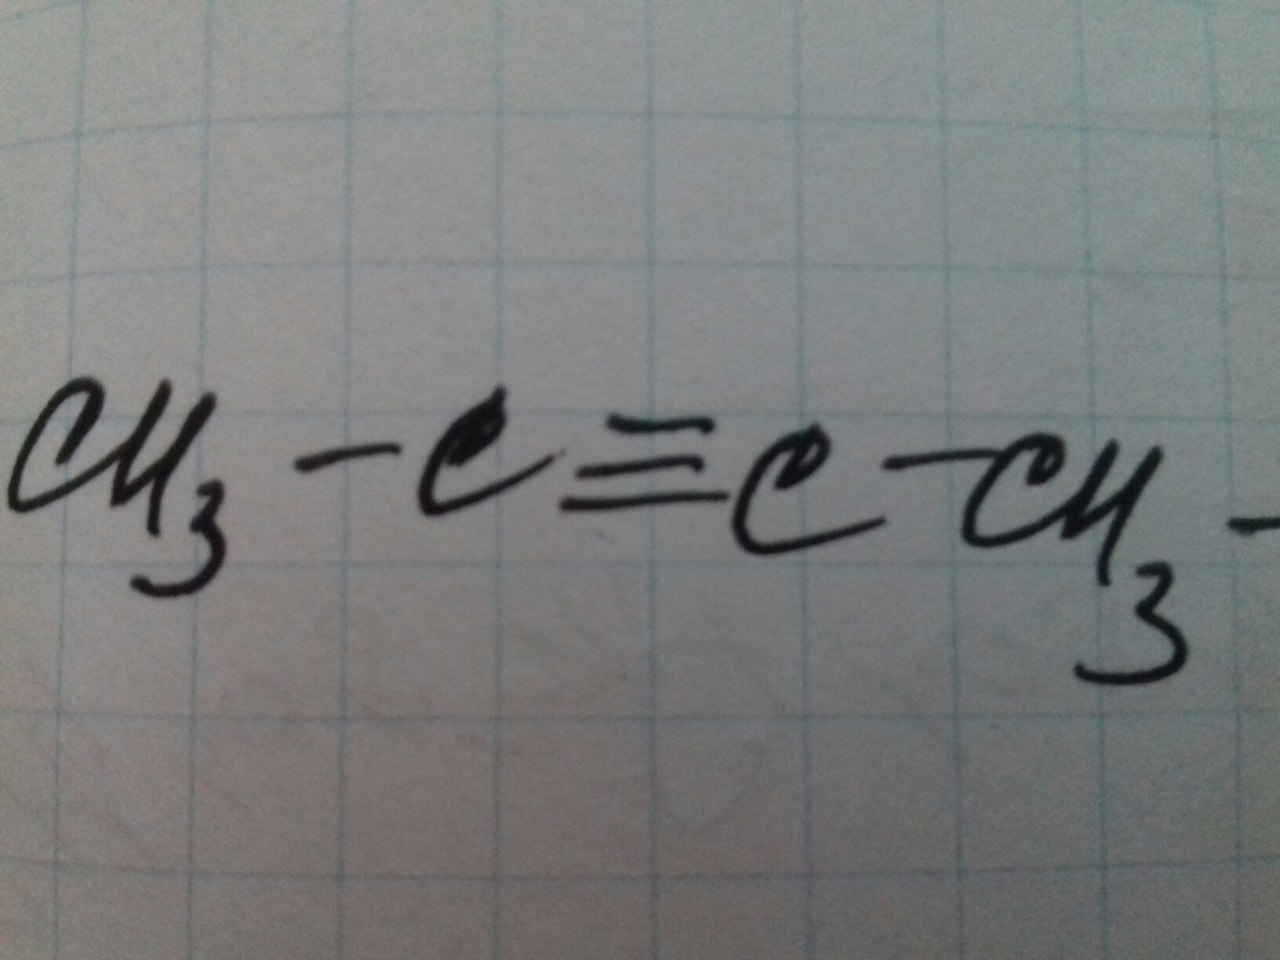 CH₃ – C ≡ C – CH₃ –